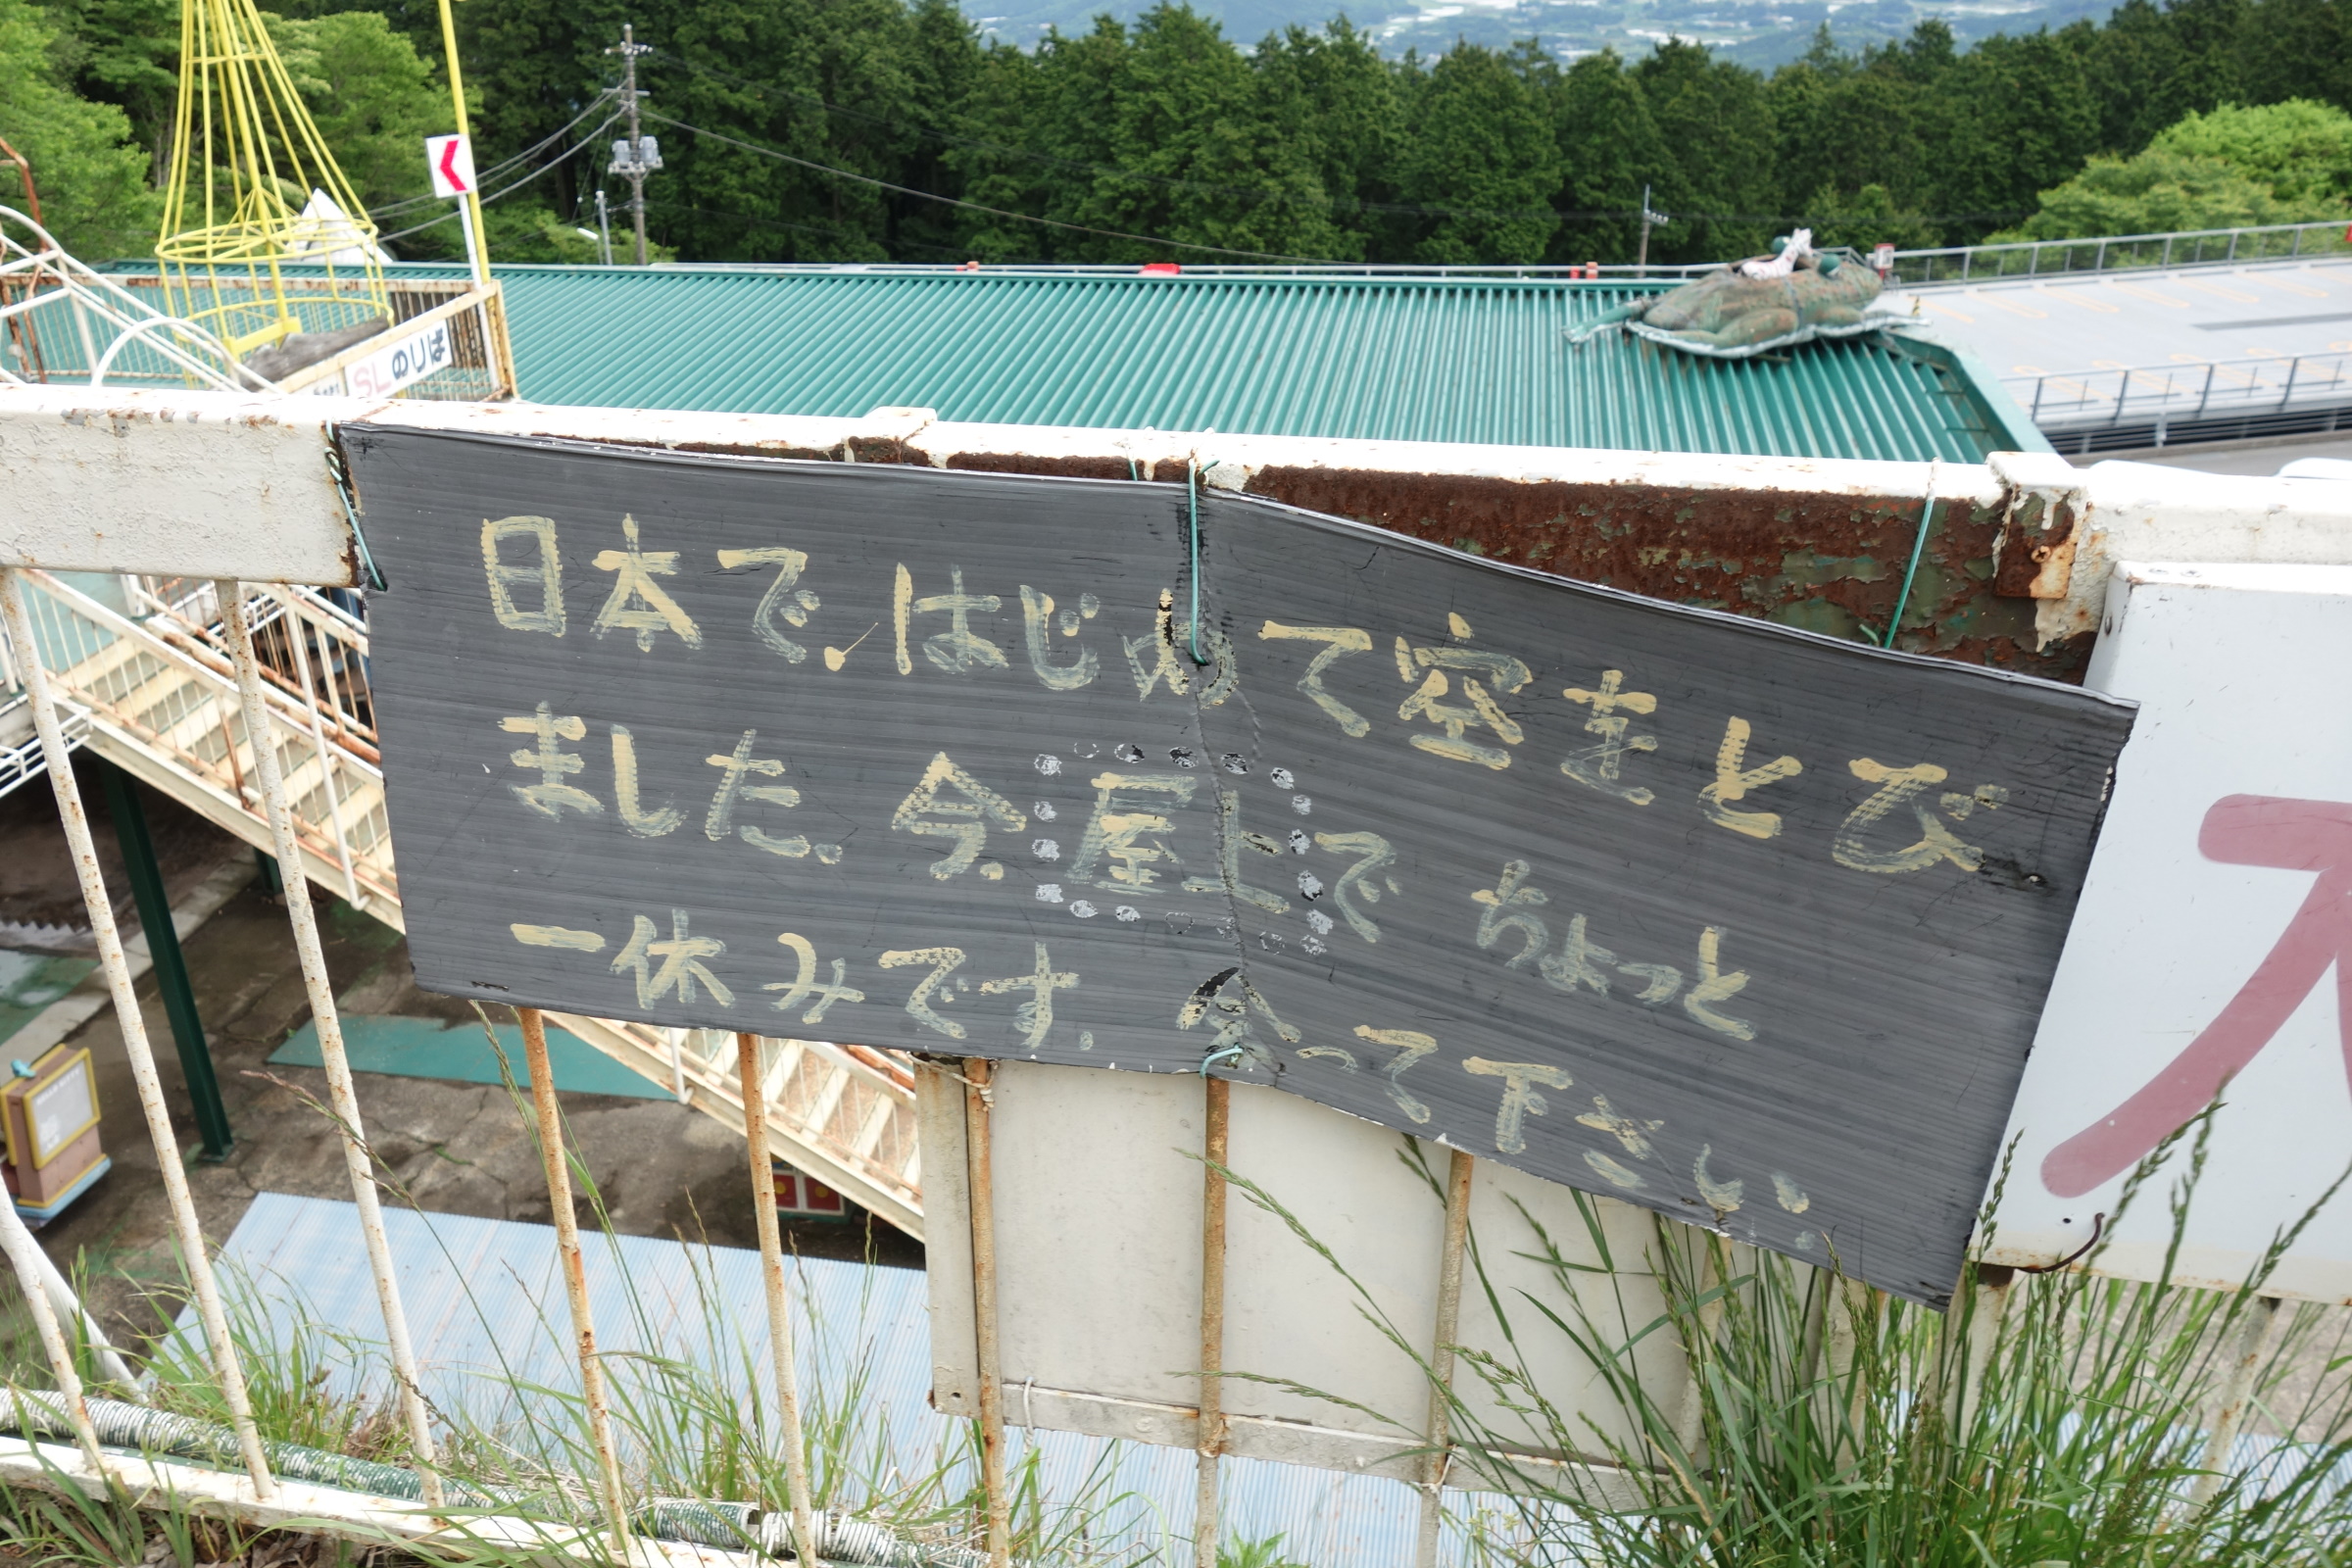 SLのりば
日本で、はじめて空をとび
ました。今、屋上でちょっと
一休みです。会って下さい。